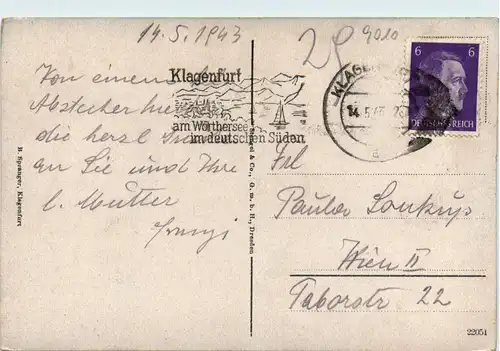 14.5.1943
2P 9010
Klagenfurt
am Wörthersee
im deutschen Süden
KLAGENFURT
14.5.43
a
6 6
DEUTSCHES REICH
Von einem
Abstecher hie
die herzl.
an Sie und Ihre
l. Mutter
Frl
Paula Soukup
Wien II
Taborstr 22
B. Sprenger, Klagenfurt
& Co., G. m. b. H., Dresden
22051